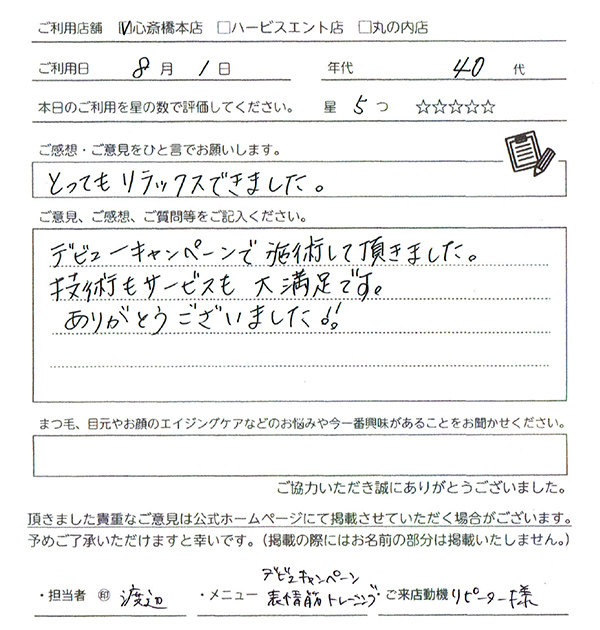 ご利用店舗 ☑心斎橋本店 □ハービスエント店 □丸の内店
ご利用日 8月1日 年代 40代
本日のご利用を星の数で評価してください。 星 5つ ☆☆☆☆☆
ご感想・ご意見をひと言でお願いします。
とってもリラックスできました。
ご意見、ご感想、ご質問等をご記入ください。
デビューキャンペーンで施術して頂きました。
技術もサービスも大満足です。
ありがとうございました!!
まつ毛、目元やお顔のエイジングケアなどのお悩みや今一番興味があることをお聞かせください。
ご協力いただき誠にありがとうございました。
頂きました貴重なご意見は公式ホームページにて掲載させていただく場合がございます。
予めご了承いただけますと幸いです。（掲載の際にはお名前の部分は掲載いたしません。）
デビューキャンペーン
・担当者 ㊞ 渡辺 ・メニュー 表情筋トレーニング ・ご来店動機 リピーター様